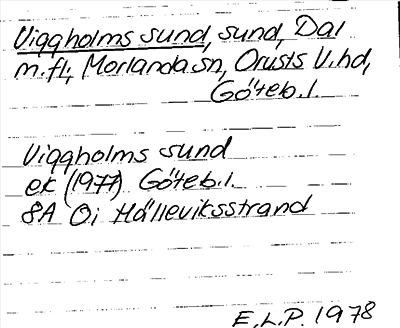 Viggholms sund, sund, Dal
m.fl., Morlanda sn, Orusts V. hd,
Göteb. l.
Viggholms sund
ek (1977) Göteb. l.
8A Oi Hälleviksstrand
E.L.P. 1978